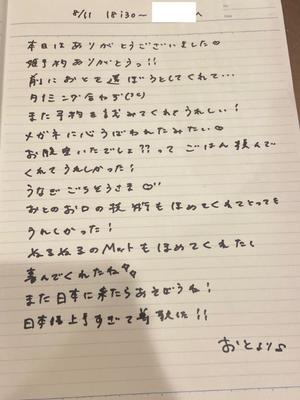 8/11 18:30〜 へ
本日はありがとうございました♡
姫予約ありがとうっ!!
前におとを選ぼうとしてくれて...
タイミング合わず(;_;)
また予約を試みてくれてうれしい!
メガネに心うばわれたみたい♡
お腹空いたでしょ??って ごはん頼んで
くれてうれしかった!
うなぎ ごちそうさま♡
おとのお口の技術もほめてくれてとっても
うれしかった!
ぬるぬるのMattもほめてくれたし
喜んでくれたね
また日本に来たらあそぼうね!
日本語上手すぎて尊敬だ!!
おとより♪